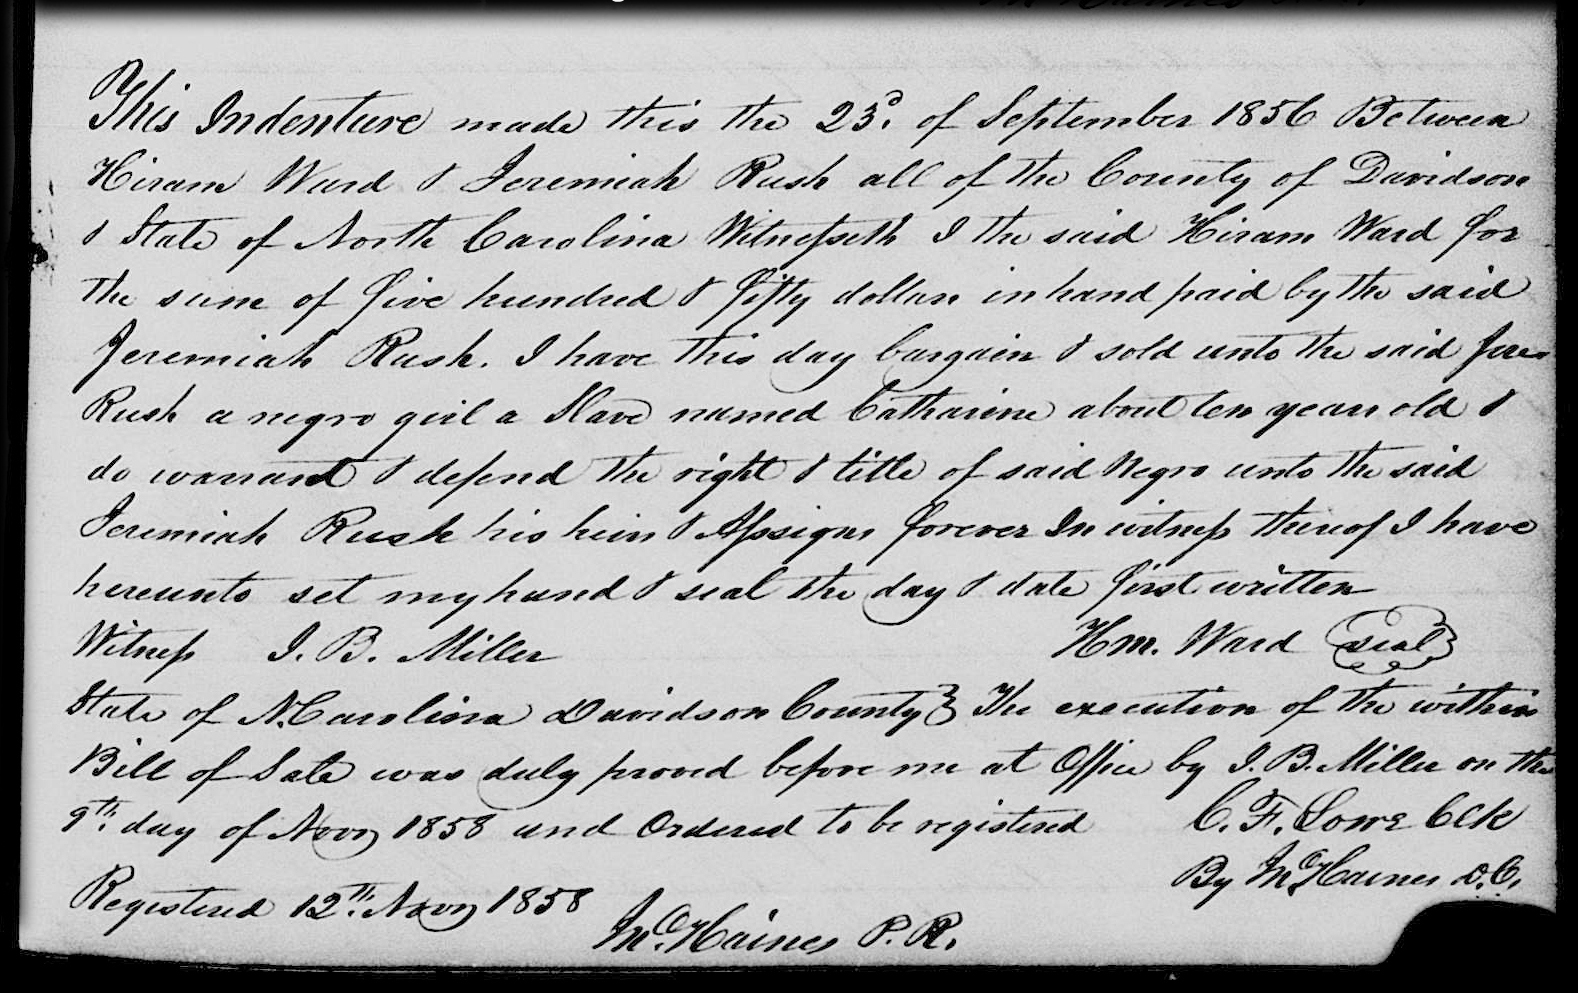 This Indenture made this the 23d. of September 1856 Between
Hiram Ward & Jeremiah Rush all of the County of Davidson
& State of North Carolina Witnesseth I the said Hiram Ward for
the sum of five hundred & fifty dollars in hand paid by the said
Jeremiah Rush. I have this day bargain & sold unto the said Jere
Rush a negro girl a Slave named Catharine about ten years old &
do warrant & defend the right & title of said Negro unto the said
Jeremiah Rush his heirs & Assigns forever In witness thereof I have
hereunto set my hand & seal the day & date first written
Witness J. B. Miller Hm. Ward seal
State of N. Carolina Davidson County} The execution of the within
Bill of Sale was duly proved before me at Office by J. B. Miller on the
9th. day of Novr 1858 and Ordered to be registered C. F. Lowe Clk
By Mc. Haines D. C.
Registered 12th. Novr 1858
Mc. Haines P. R.